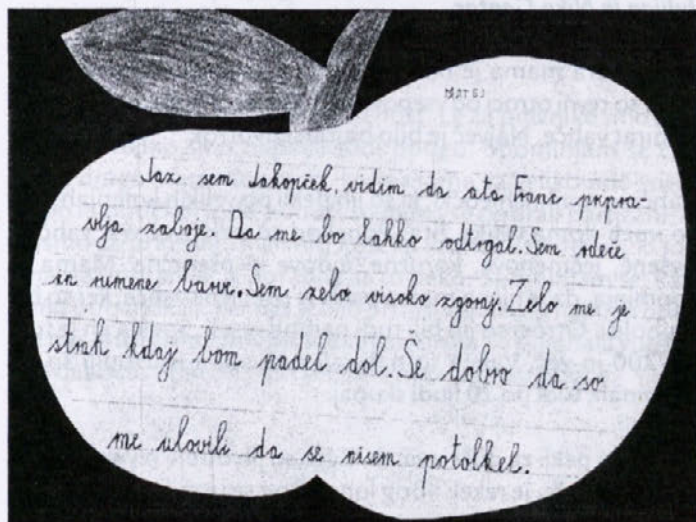 MATEJ
Jaz sem Jakopček, vidim da ata Franc pripra-
vlja zaboje. Da me bo lahko odtrgal. Sem rdeče
in rumene barve. Sem zelo visoko zgoraj. Zelo me je
strah kdaj bom padel dol. Še dobro da so
me ulovili da se nisem potolkel.